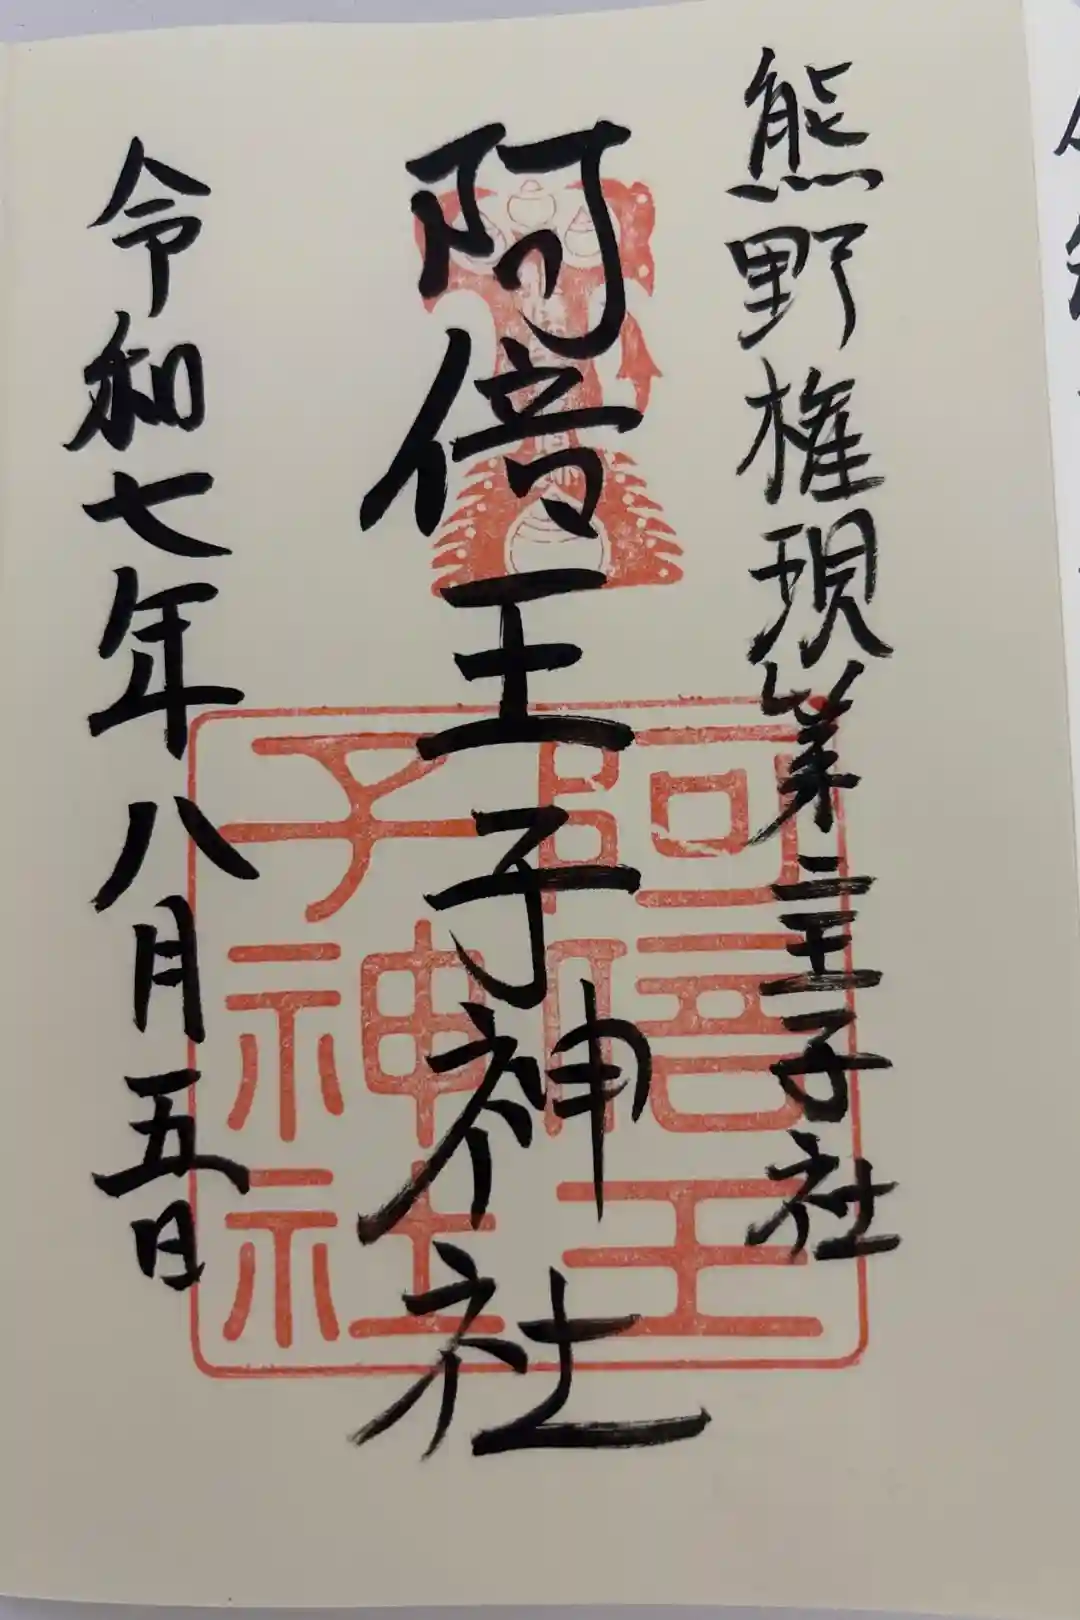 熊野権現第二王子社
阿倍王子神社
令和七年八月五日
阿倍王子神社